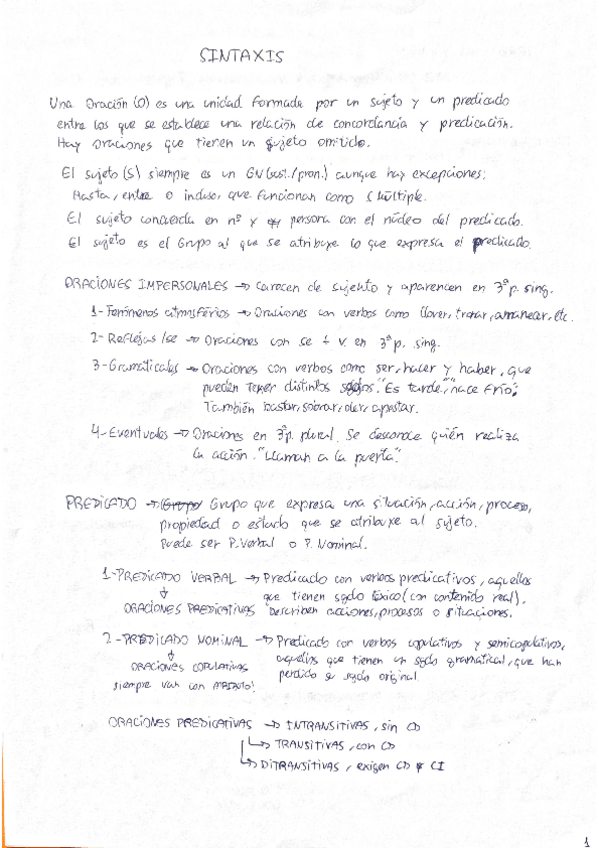 SINTAXIS
Una Oración (O) es una unidad formada por un sujeto y un predicado
entre los que se establece una relación de concordancia y predicación.
Hay oraciones que tienen un sujeto omitido.
El sujeto (S) siempre es un GN (sust./pron.) aunque hay excepciones:
Hasta, entre o incluso, que funcionan como S múltiple.
El sujeto concuerda en nº y persona con el núcleo del predicado.
El sujeto es el Grupo al que se atribuye lo que expresa el predicado.
ORACIONES IMPERSONALES → Carecen de sujeto y aparecen en 3ª p. sing.
1- Fenómenos atmosféricos → Oraciones con verbos como llover, tronar, amanecer, etc.
2- Reflejas /se → Oraciones con se + v. en 3ª p. sing.
3- Gramaticales → Oraciones con verbos como ser, hacer y haber, que
pueden tener distintos "Es tarde," "hace frío";
También bastar, sobrar, oler, apestar.
4- Eventuales → Oraciones en 3ª p. plural. Se desconoce quién realiza
la acción. "Llaman a la puerta".
PREDICADO → Grupo que expresa una situación, acción, proceso,
propiedad o estado que se atribuye al sujeto.
Puede ser P. Verbal o P. Nominal.
1- PREDICADO VERBAL → Predicado con verbos predicativos, aquellos
que tienen sgdo léxico (con contenido real).
ORACIONES PREDICATIVAS Describen acciones, procesos o situaciones.
2- PREDICADO NOMINAL → Predicado con verbos copulativos y semicopulativos,
aquellos que tienen un sgdo gramatical, que han
ORACIONES COPULATIVAS perdido su sgdo original
siempre van con ATRIBUTO!
ORACIONES PREDICATIVAS → INTRANSITIVAS, sin CD
→ TRANSITIVAS, con CD
→ DITRANSITIVAS, exigen CD y CI
1